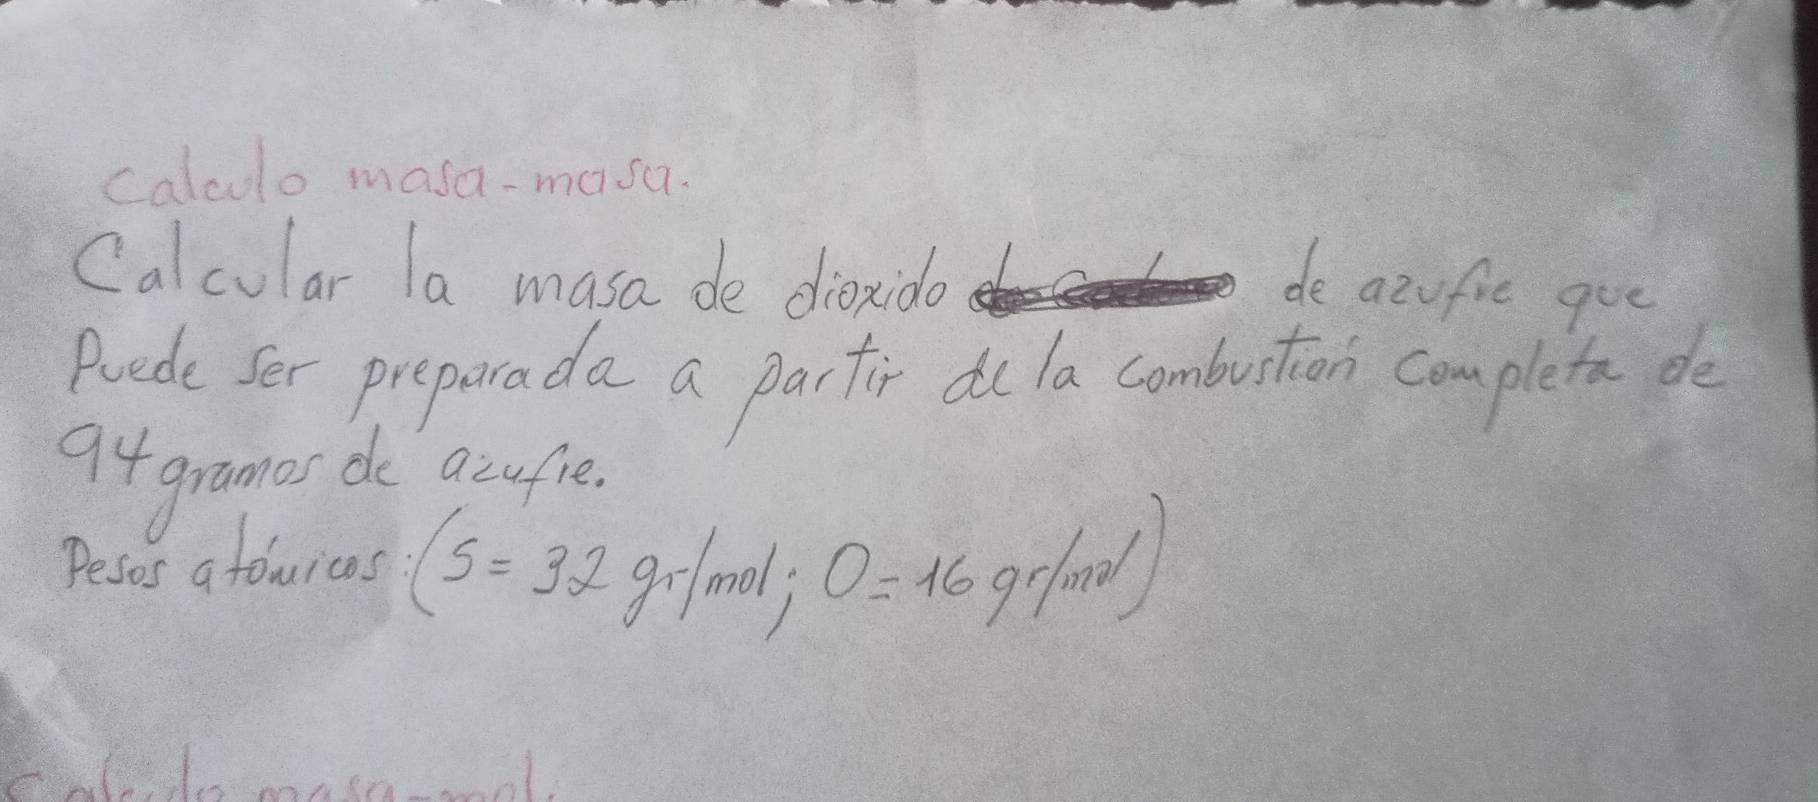 calculo masa-masa.
Calcular la masa de dioxido de azufre que
Puede ser preparada a partir de la combustión completa de
94 gramos de azufre.
Pesos atómicos: (S = 32 gr/mol; O = 16 gr/mol)
Calculo masa-mol.